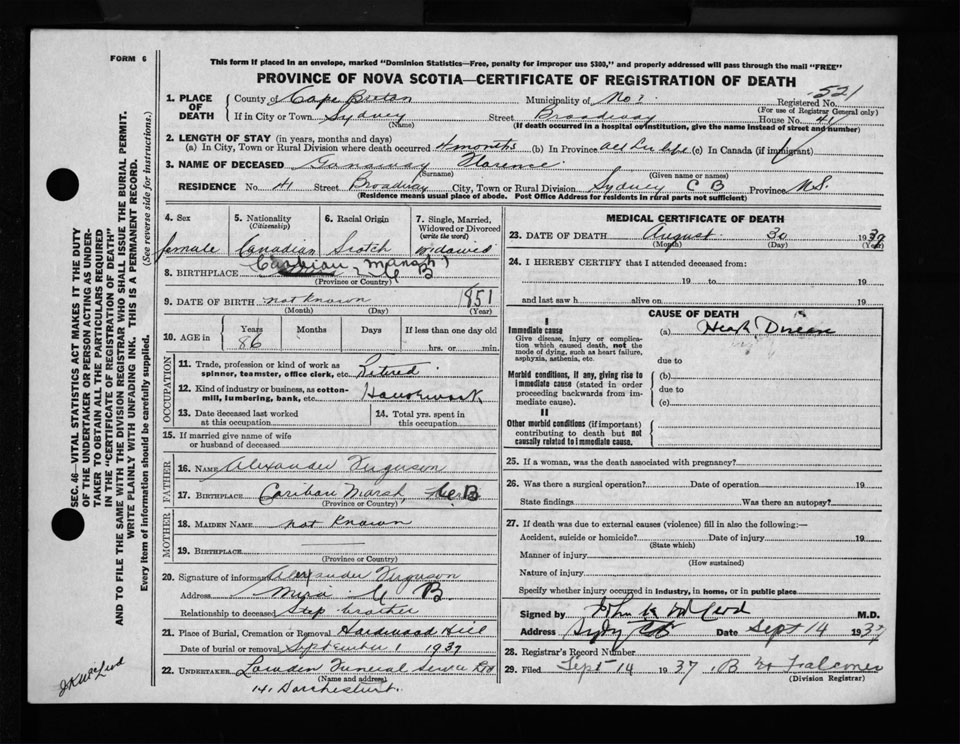 FORM 6
This form if placed in an envelope, marked "Dominion Statistics—Free, penalty for improper use $300," and properly addressed will pass through the mail "FREE"
PROVINCE OF NOVA SCOTIA—CERTIFICATE OF REGISTRATION OF DEATH
1. PLACE OF DEATH
County of Cape Breton Municipality of No 2. Registered No. 521
(For use of Registrar General only)
If in City or Town Sydney Street Broadway House No. 41
(Name) (If death occurred in a hospital or institution, give the name instead of street and number)
2. LENGTH OF STAY (in years, months and days)
(a) In City, Town or Rural Division where death occurred 4 months (b) In Province all her life (c) In Canada (if immigrant)
3. NAME OF DECEASED Florence
(Surname) (Given name or names)
RESIDENCE No. 41 Street Broadway City, Town or Rural Division Sydney C B Province N.S.
(Residence means usual place of abode. Post Office Address for residents in rural parts not sufficient)
4. Sex female
5. Nationality (Citizenship) Canadian
6. Racial Origin Scotch
7. Single, Married, Widowed or Divorced (write the word) widowed
8. BIRTHPLACE Caribou Marsh C B
(Province or Country)
9. DATE OF BIRTH not known 1851
(Month) (Day) (Year)
10. AGE in Years 86 Months Days If less than one day old
hrs. or min.
OCCUPATION
11. Trade, profession or kind of work as spinner, teamster, office clerk, etc. Retired
12. Kind of industry or business, as cotton-mill, lumbering, bank, etc. Housework
13. Date deceased last worked at this occupation
14. Total yrs. spent in this occupation
15. If married give name of wife or husband of deceased
FATHER
16. NAME Alexander Ferguson
17. BIRTHPLACE Caribou Marsh, C B
(Province or Country)
MOTHER
18. MAIDEN NAME not known
19. BIRTHPLACE
(Province or Country)
20. Signature of informant Alexander Ferguson
Address Mira C B.
Relationship to deceased Step brother
21. Place of Burial, Cremation or Removal Hardwood Hill
Date of burial or removal September 1 1937
22. UNDERTAKER Funeral Service
(Name and address)
14 Dorchester St.
MEDICAL CERTIFICATE OF DEATH
23. DATE OF DEATH August 30 1937
(Month) (Day) (Year)
24. I HEREBY CERTIFY that I attended deceased from:
19 to 19
and last saw h alive on 19
CAUSE OF DEATH
I
Immediate cause
Give disease, injury or complication which caused death, not the mode of dying, such as heart failure, asphyxia, asthenia, etc.
(a) Heart Disease
due to
Morbid conditions, if any, giving rise to immediate cause (stated in order proceeding backwards from immediate cause).
(b)
due to
(c)
II
Other morbid conditions (if important) contributing to death but not causally related to immediate cause.
25. If a woman, was the death associated with pregnancy?
26. Was there a surgical operation? Date of operation 19
State findings Was there an autopsy?
27. If death was due to external causes (violence) fill in also the following:—
Accident, suicide or homicide? Date of injury 19
(State which)
Manner of injury
(How sustained)
Nature of injury
Specify whether injury occurred in industry, in home, or in public place
Signed by John K McLeod M.D.
Address Sydney C B Date Sept 14 1937
28. Registrar's Record Number
29. Filed Sept 14 1937 Falconer
(Division Registrar)
SEC. 46—VITAL STATISTICS ACT MAKES IT THE DUTY
OF THE UNDERTAKER OR PERSON ACTING AS UNDER-
TAKER TO OBTAIN ALL THE PARTICULARS REQUIRED
IN THE "CERTIFICATE OF REGISTRATION OF DEATH"
AND TO FILE THE SAME WITH THE DIVISION REGISTRAR WHO SHALL ISSUE THE BURIAL PERMIT.
WRITE PLAINLY WITH UNFADING INK. THIS IS A PERMANENT RECORD.
Every item of information should be carefully supplied. (See reverse side for instructions.)
J K McLeod